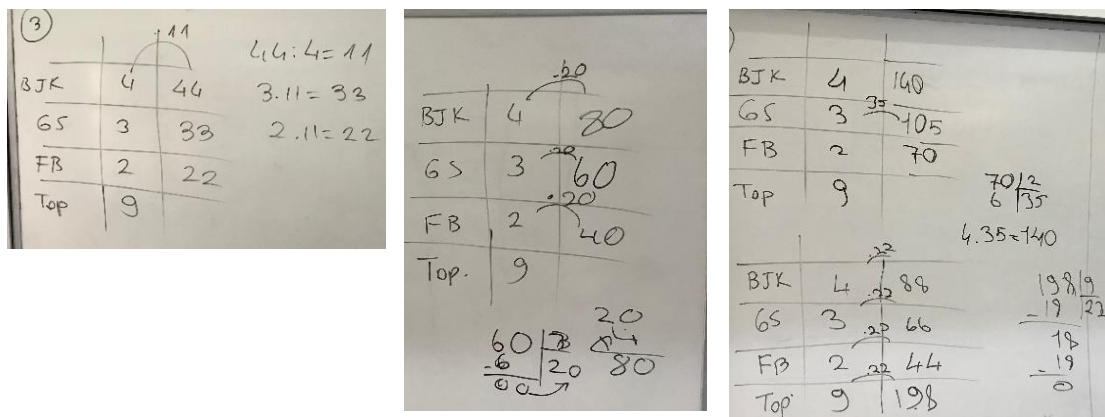 3
.11
BJK 4 44
GS 3 33
FB 2 22
Top 9
44:4=11
3.11=33
2.11=22
.20
BJK 4 80
.20
GS 3 60
.20
FB 2 40
Top. 9
60 3
-6 20
00
20
×4
80
BJK 4 140
35
GS 3 105
FB 2 70
Top 9
70 2
6 35
4.35=140
.22
BJK 4 88
.22
GS 3 66
.22
FB 2 44
.22
Top. 9 198
198 9
-19 22
18
-19
0